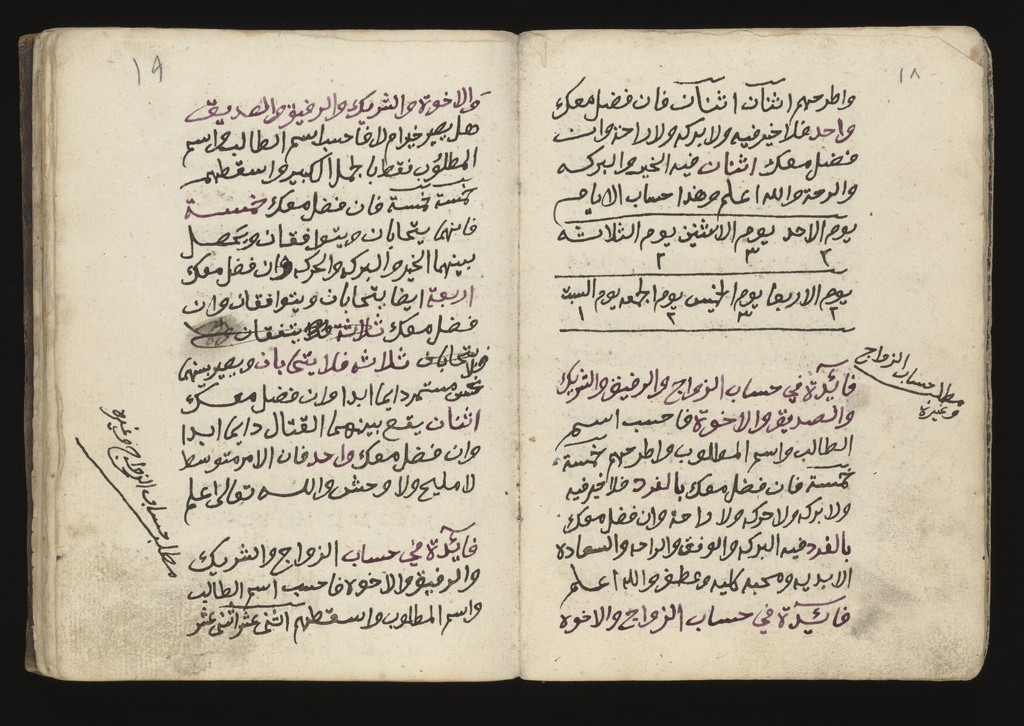 ١٨
واطرحهم اثنان اثنان فان فضل معك
واحد فلا خير فيه ولا بركه ولا راحة وان
فضل معك اثنان فيه الخير والبركه
والرحة والله اعلم وهذا حساب الايام
يوم الاحد يوم الاثنين يوم الثلاثه
٢ ٣ ٢
يوم الاربعا يوم الخميس يوم الجمعه يوم السبت
٢ ٣ ٢ ١
مطلب حساب الزواج
وغيره
فائدة في حساب الزواج والرفيق والشريك
والصديق والاخوة فاحسب اسم
الطالب واسم المطلوب واطرحهم خمسة
خمسة فان فضل معك بالفرد فلا خير فيه
ولا بركه ولا حركه ولا راحة وان فضل معك
بالفرد فيه البركه والوفق والراحه والسعاده
الابديه ومحبه كليه وعطف والله اعلم
فائدة في حساب الزواج والاخوة
١٩
والاخوة والشريك والرفيق والصديق
هل يصير خير ام لا فاحسب اسم الطالب واسم
المطلوب فقط بالجمل الكبير واسقطهم
خمسة خمسة فان فضل معك خمسة
فانهما يتحابان ويتوافقان ويحصل
بينهما الخير والبركه والحركه وان فضل معك
اربعة ايضا يتحابان ويتوافقان وان
فضل معك ثلاثة يتفقان
ولا يتحابان ثلاثه فلا يتحابان ويصير بينهما
مستمر دايما ابدا وان فضل معك
اثنان يقع بينهما القتال دايما ابدا
وان فضل معك واحد فان الامر متوسط
لا مليح ولا وحش والله تعالى اعلم
مطلب حساب الزواج وغيره
فائدة في حساب الزواج والشريك
والرفيق والاخوة فاحسب اسم الطالب
واسم المطلوب واسقطهم اثنى عشر اثنى عشر